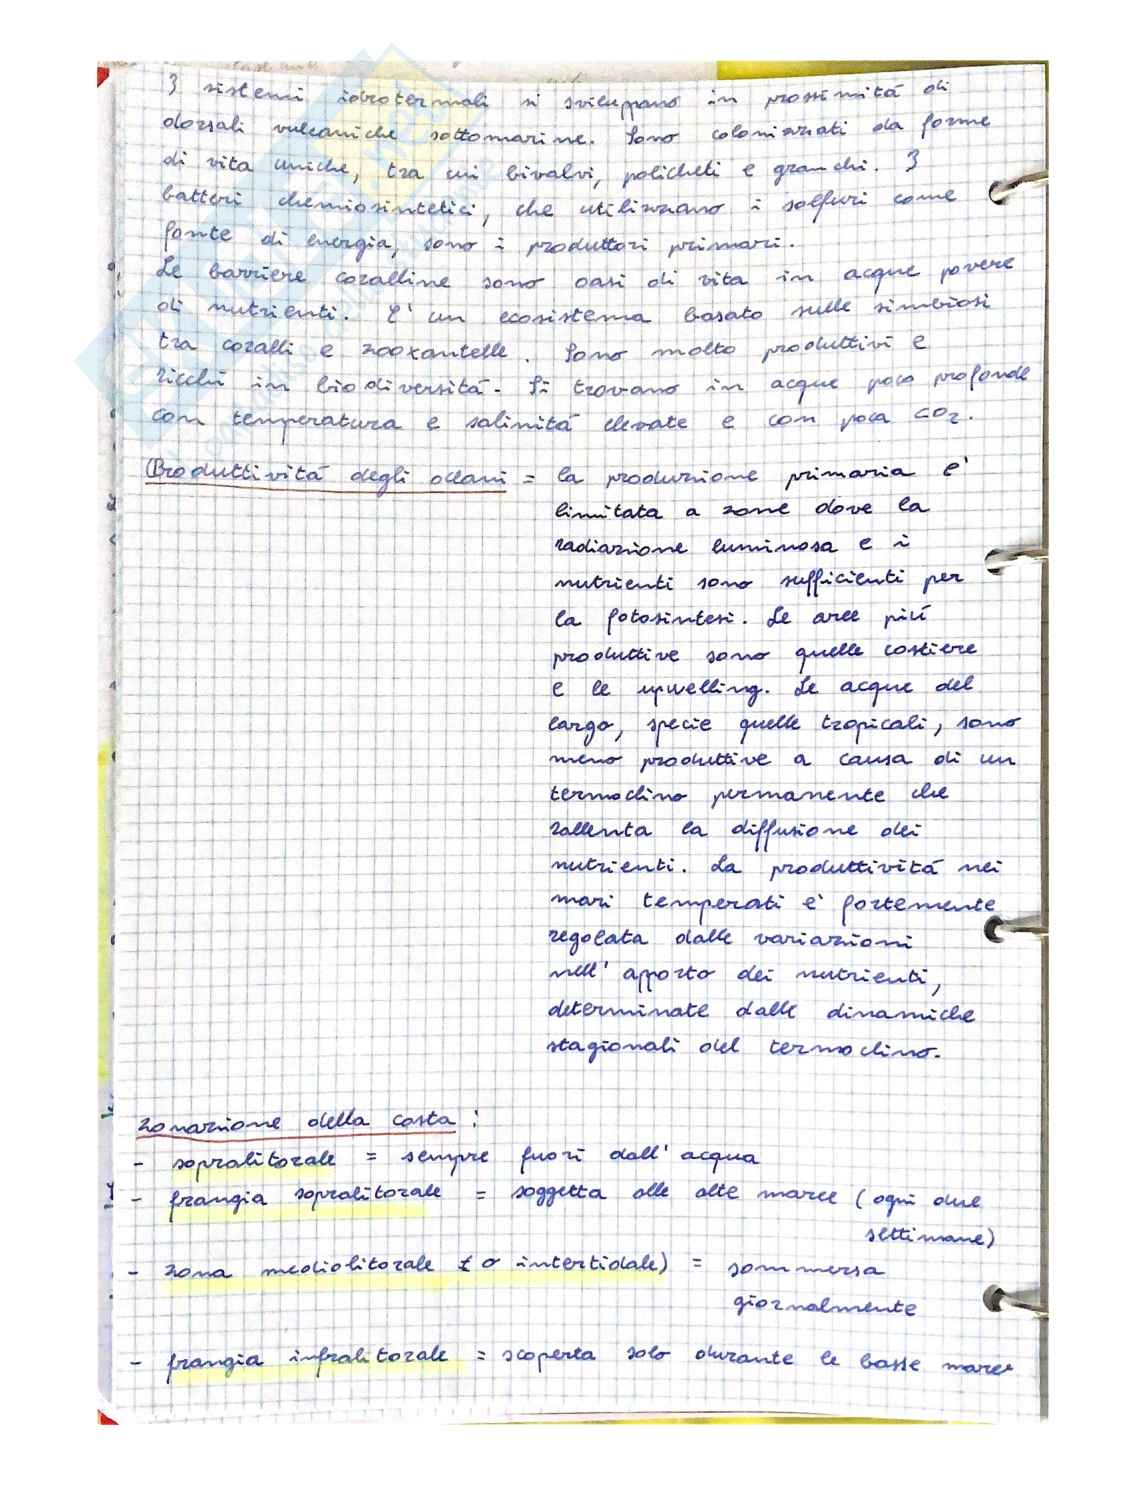 I sistemi idrotermali si sviluppano in prossimità di
dorsali vulcaniche sottomarine. Sono colonizzati da forme
di vita uniche, tra cui bivalvi, policheti e granchi. I
batteri chemiosintetici, che utilizzano i solfuri come
fonte di energia, sono i produttori primari.
Le barriere coralline sono oasi di vita in acque povere
di nutrienti. E' un ecosistema basato sulle simbiosi
tra coralli e zooxantelle. Sono molto produttivi e
ricchi in biodiversità. Si trovano in acque poco profonde
con temperatura e salinità elevate e con poca CO2.
Produttività degli oceani = la produzione primaria e'
limitata a zone dove la
radiazione luminosa e i
nutrienti sono sufficienti per
la fotosintesi. Le aree più
produttive sono quelle costiere
e le upwelling. Le acque del
largo, specie quelle tropicali, sono
meno produttive a causa di un
termoclino permanente che
rallenta la diffusione dei
nutrienti. La produttività nei
mari temperati e' fortemente
regolata dalle variazioni
nell' apporto dei nutrienti,
determinate dalle dinamiche
stagionali del termoclino.
Zonazione della costa:
- sopralitorale = sempre fuori dall' acqua
- frangia sopralitorale = soggetta alle alte maree (ogni due
settimane)
- zona mediolitorale (o intertidale) = sommersa
giornalmente
- frangia infralitorale = scoperta solo durante le basse maree